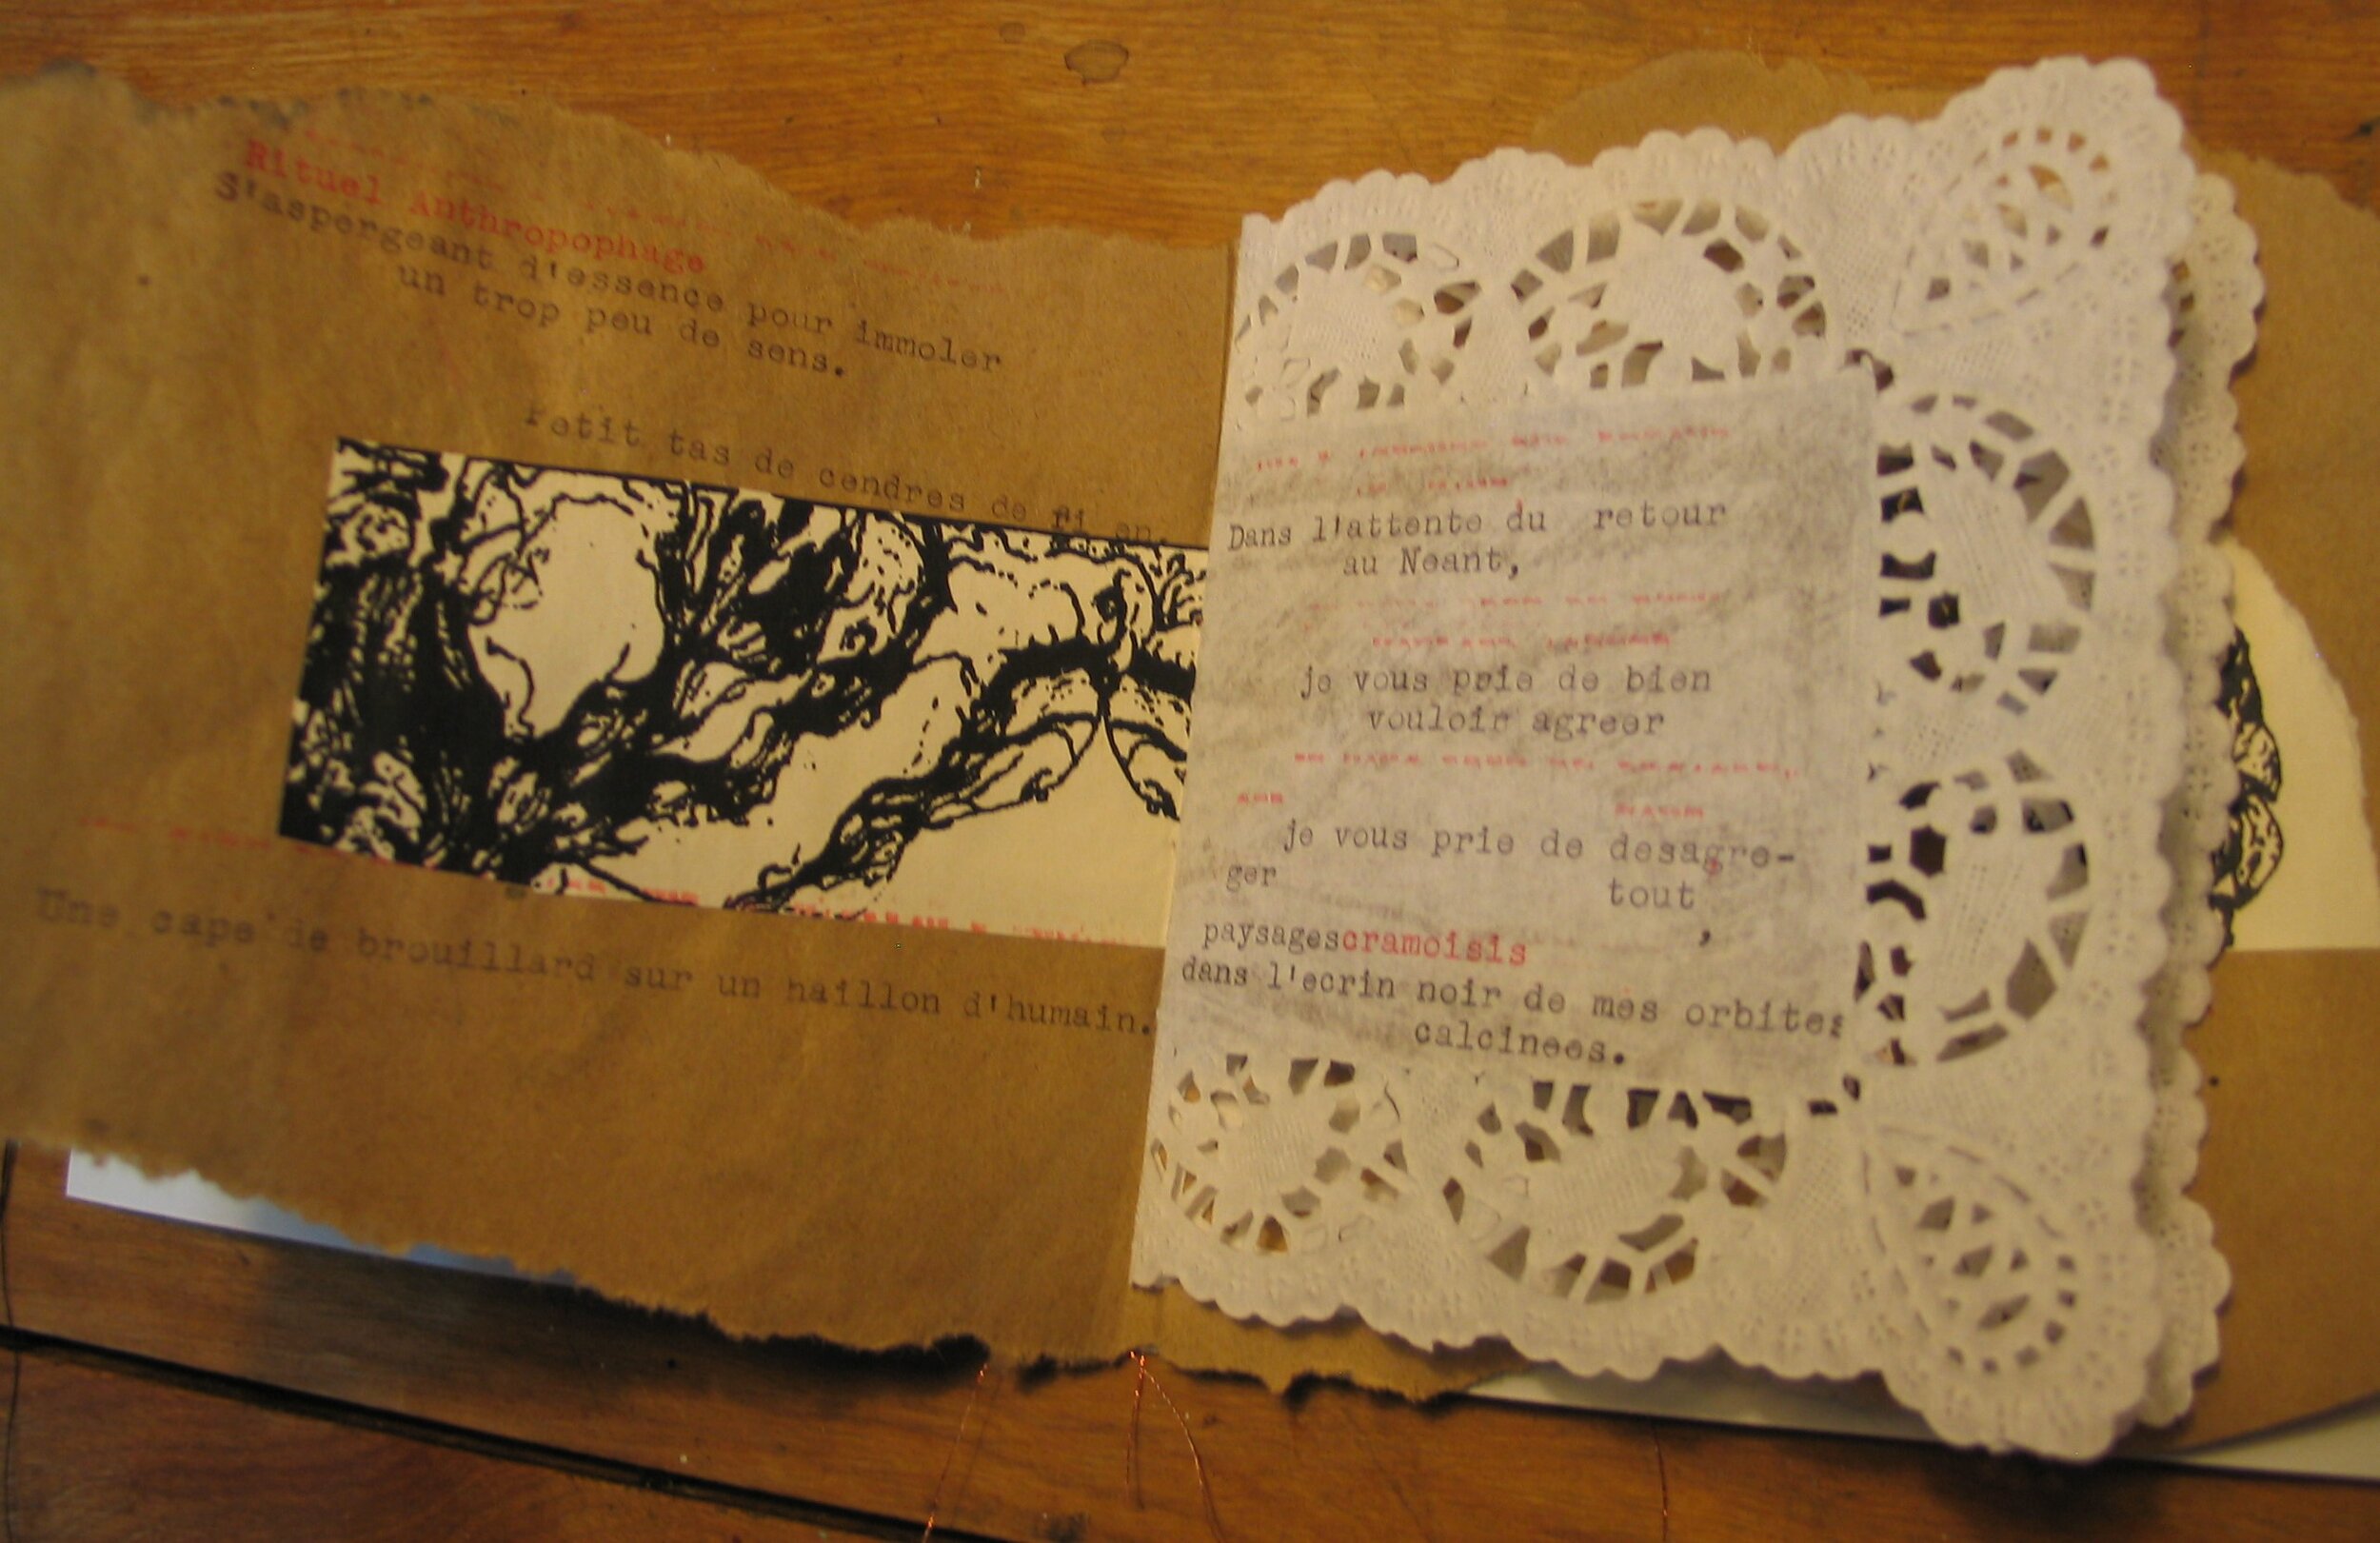 Rituel Anthropophage
S'aspergeant d'essence pour immoler
un trop peu de sens.
Petit tas de cendres de
Une cape de brouillard sur un haillon d'humain.
Dans l'attente du retour
au Neant,
je vous prie de bien
vouloir agreer
je vous prie de desagre-
ger tout
,
paysagescramoisis
dans l'ecrin noir de mes orbites
calcinees.